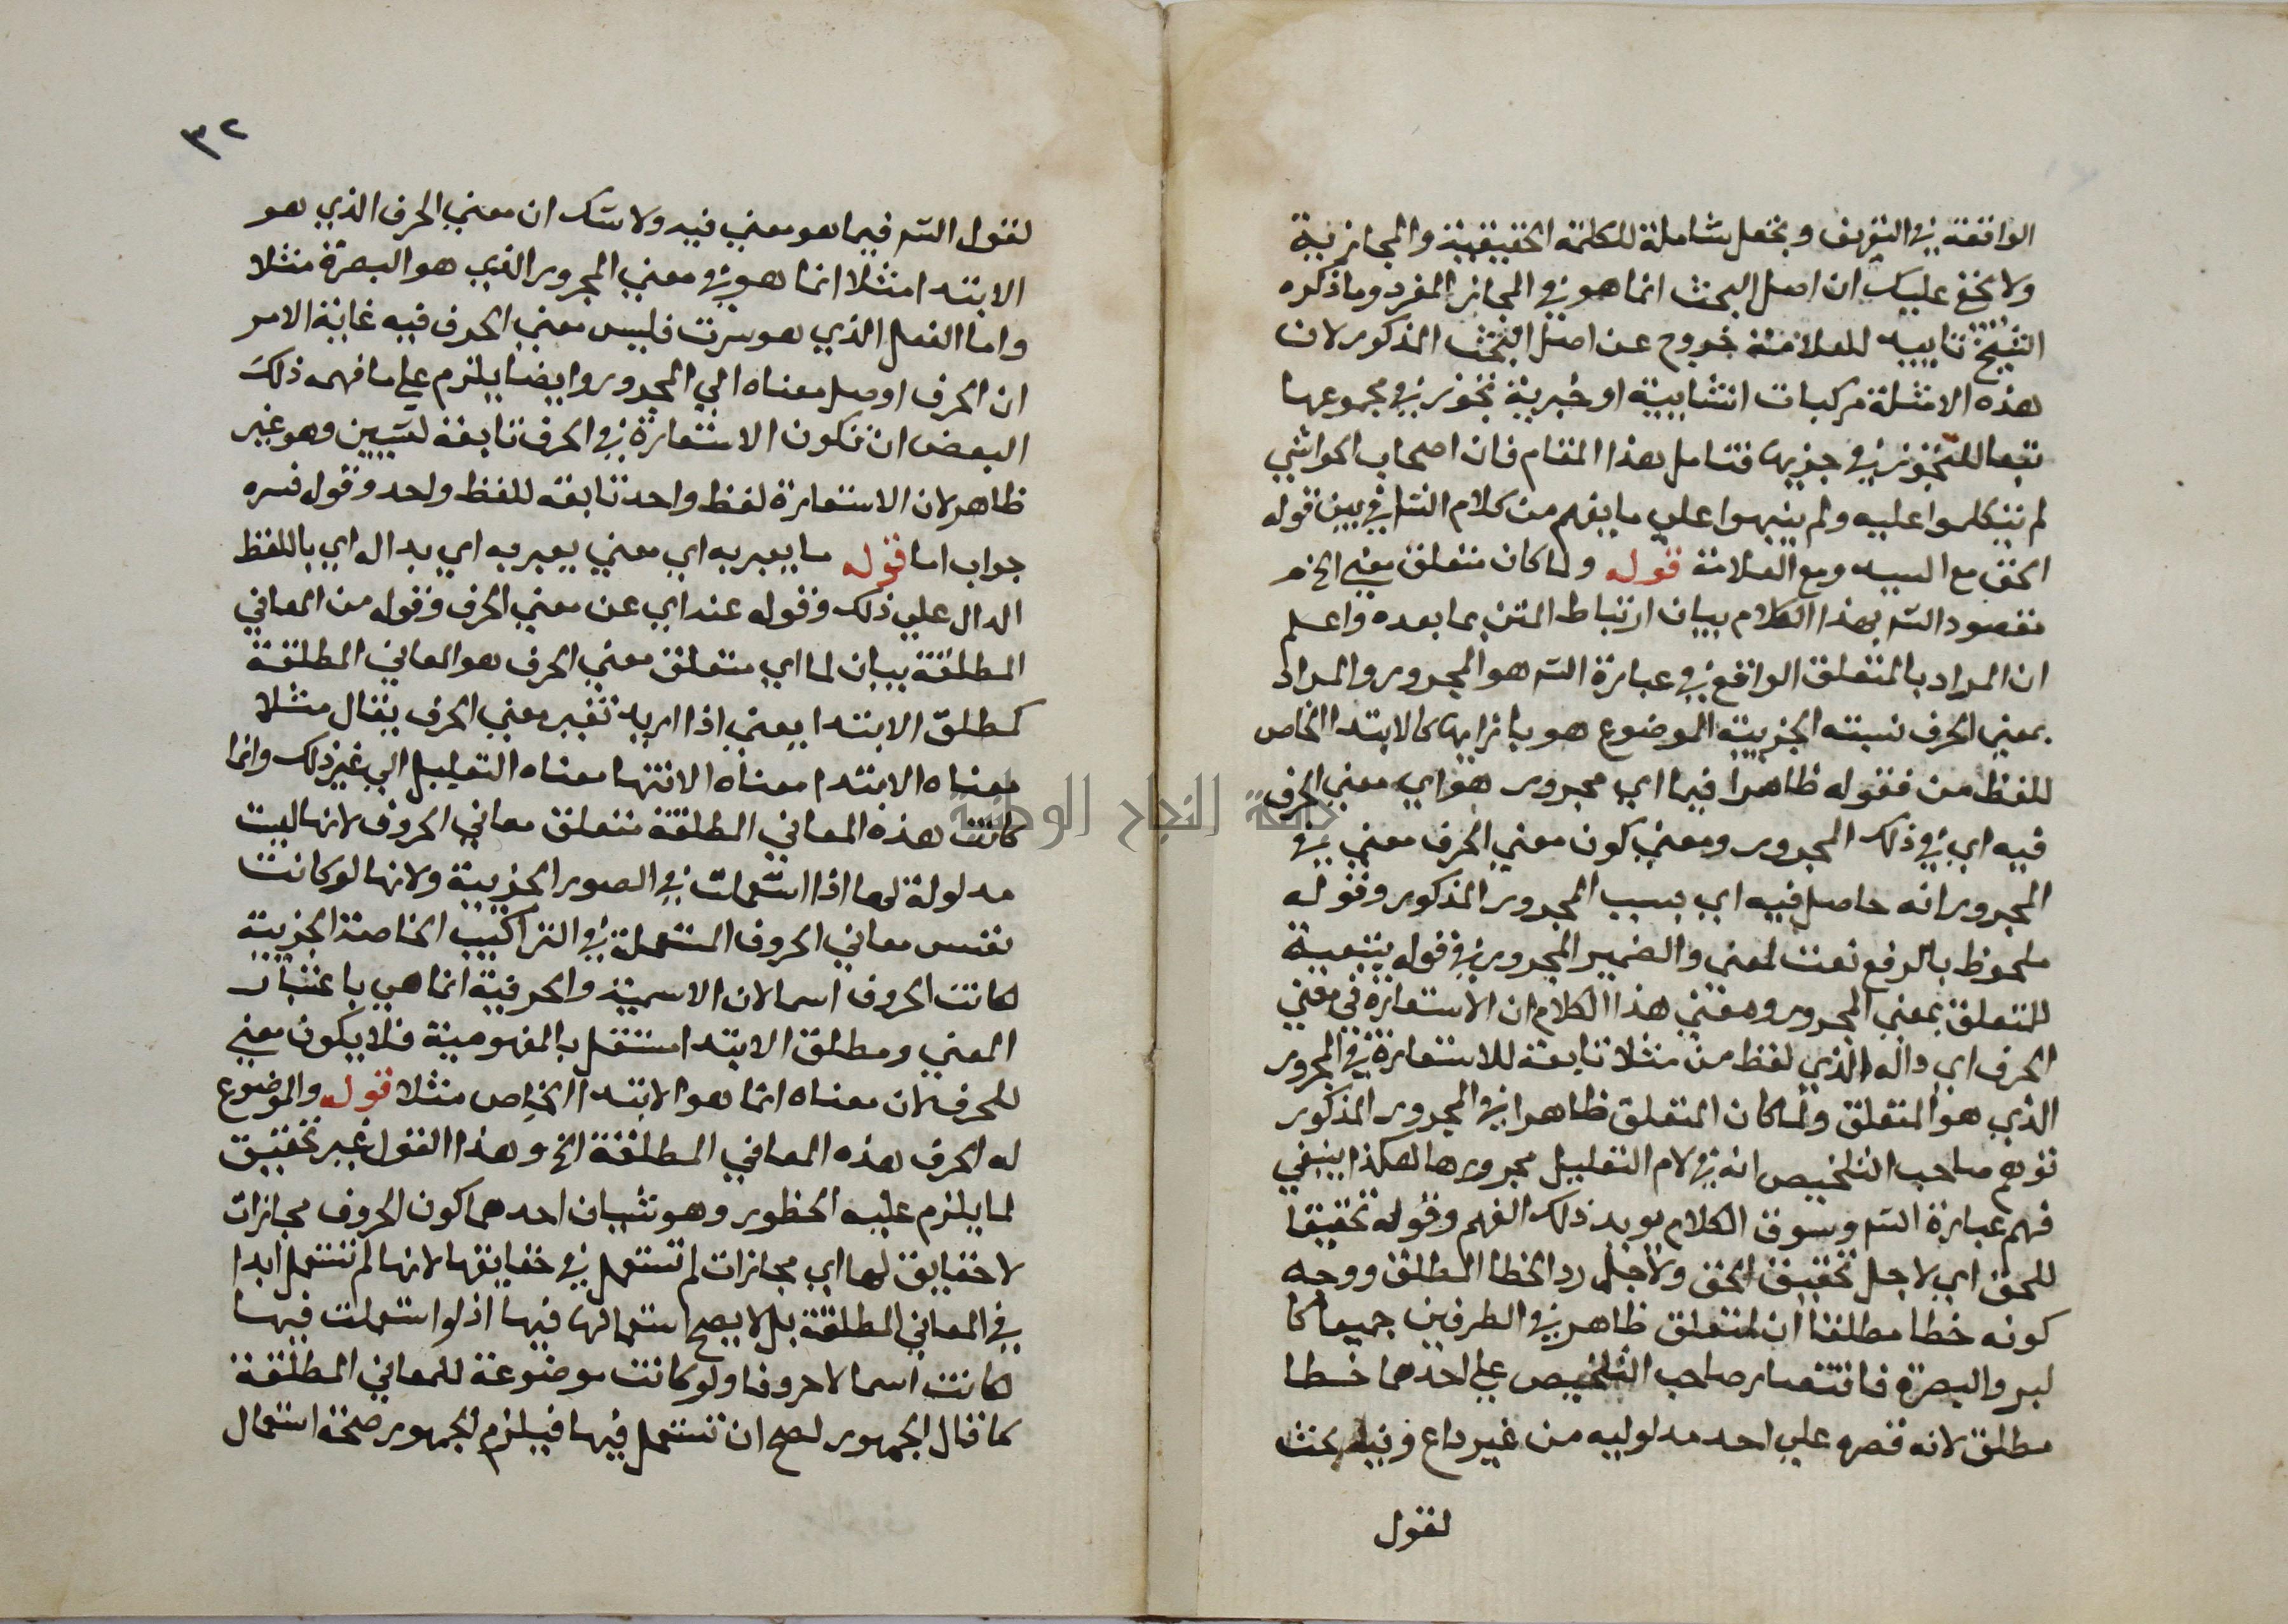 الواقعة في التعريف وتجعل شاملة للكلمة الحقيقية والمجازية
ولا يخفى عليك ان اصل البحث انما هو في المجاز المفرد وما ذكره
الشيخ للعلامة خروج عن اصل البحث المذكور لان
هذه الامثلة مركبات انشايية او خبرية تجوز في مجموعها
تبعا للتجوز في جزيها فتامل هذا المقام فان اصحاب الحواشي
لم يتكلموا عليه ولم ينبهوا علي ما يفهم من كلام الشارح بين قوله
الحق مع السيد ومع العلامة قوله ولما كان متعلق معني الخ
مقصود الشه بهذا الكلام بيان ارتباط المتن بما بعده واعلم
ان المراد بالمتعلق الواقع في عبارة الشه هو المجرور والمراد
بمعني الحرف نسبته الجزيية الموضوع هو بازايها كالابتدا الخاص
للفظ من فقوله ظاهرا فيما اي مجرور هو اي معني الحرف
فيه اي في ذلك المجرور ومعني كون معني الحرف معني في
المجرور انه حاصل فيه اي بسبب المجرور المذكور وقوله
ملحوظ بالرفع نعت لمعني والضمير المجرور في قوله بتبعية
للمتعلق بمعني المجرور ومعني هذا الكلام ان الاستعارة في معني
الحرف اي داله الذي لفظ من مثلا تابعة للاستعارة في المجرور
الذي هو المتعلق ولما كان المتعلق ظاهرا في المجرور المذكور
توهم صاحب التلخيص انه في لام التعليل مجرورها هكذا ينبغي
فهم عبارة الشه وسوق الكلام يويد ذلك الفهم وقوله تحقيقا
للحق اي لاجل تحقيق الحق ولاجل رد الخطا المطلق ووجه
كونه خطا مطلقا ان المتعلق ظاهر في الطرفين جميعا كا
لسير والبصرة فاقتصار صاحب التلخيص علي احدهما خطا
مطلق لانه قصره علي احد مدلوليه من غير داع وفيه بحث
لقول
٣٢
لقول الشه فيما هو معني فيه ولا شك ان معني الحرف الذي هو
الابتدا مثلا انما هو في معني المجرور الذي هو البصرة مثلا
واما الفعل الذي هو سرت فليس معني الحرف فيه غاية الامر
ان الحرف اوصل معناه الي المجرور وايضا يلزم علي ما فهمه ذلك
البعض ان تكون الاستعارة في الحرف تابعة لشيين وهو غير
ظاهر لان الاستعارة لفظ واحد تابعة للفظ واحد وقوله فسره
جواب اما قوله ما يعبر به اي معني يعبر به اي بدال اي باللفظ
الدال علي ذلك وقوله عند اي عن معني الحرف وقوله من المعاني
المطلقة بيان لما اي متعلق معني الحرف هو المعاني المطلقة
كمطلق الابتدا يعني اذا اريد تفسير معني الحرف يقال مثلا
معناه الابتدا معناه الانتها معناه التعليل الي غير ذلك وانما
كانت هذه المعاني المطلقة متعلق معاني الحروف لانها ليست
مدلولة لها اذا استعملت في الصور الجزيية ولانها لو كانت
نفس معاني الحروف المستعملة في التراكيب الخاصة الجزيية
لكانت الحروف اسما لان الاسمية والحرفية انما هي باعتبار
المعني ومطلق الابتدا مستقل بالمفهومية فلا يكون معني
للحرف لان معناه انما هو الابتدا الخاص مثلا قوله والموضوع
له الحرف هذه المعاني المطلقة الخ وهذا القول غير تحقيق
لما يلزم عليه المحظور وهو شييان احدهما كون الحروف مجازات
لا حقايق لها اي مجازات لم تستعمل في حقايقها لانها لم تستعمل ابدا
في المعاني المطلقة بل لا يصح استعمالها فيها اذ لو استعملت فيها
لكانت اسما لا حروفا ولو كانت موضوعة للمعاني المطلقة
كما قال الجمهور لصح ان تستعمل فيها فيلزم الجمهور صحة استعمال
جامعة النجاح الوطنية